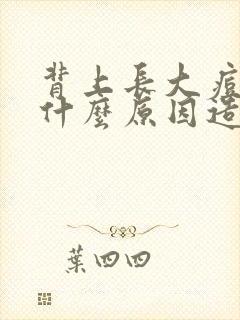 背上長大痘
什麼原因造
葉四四